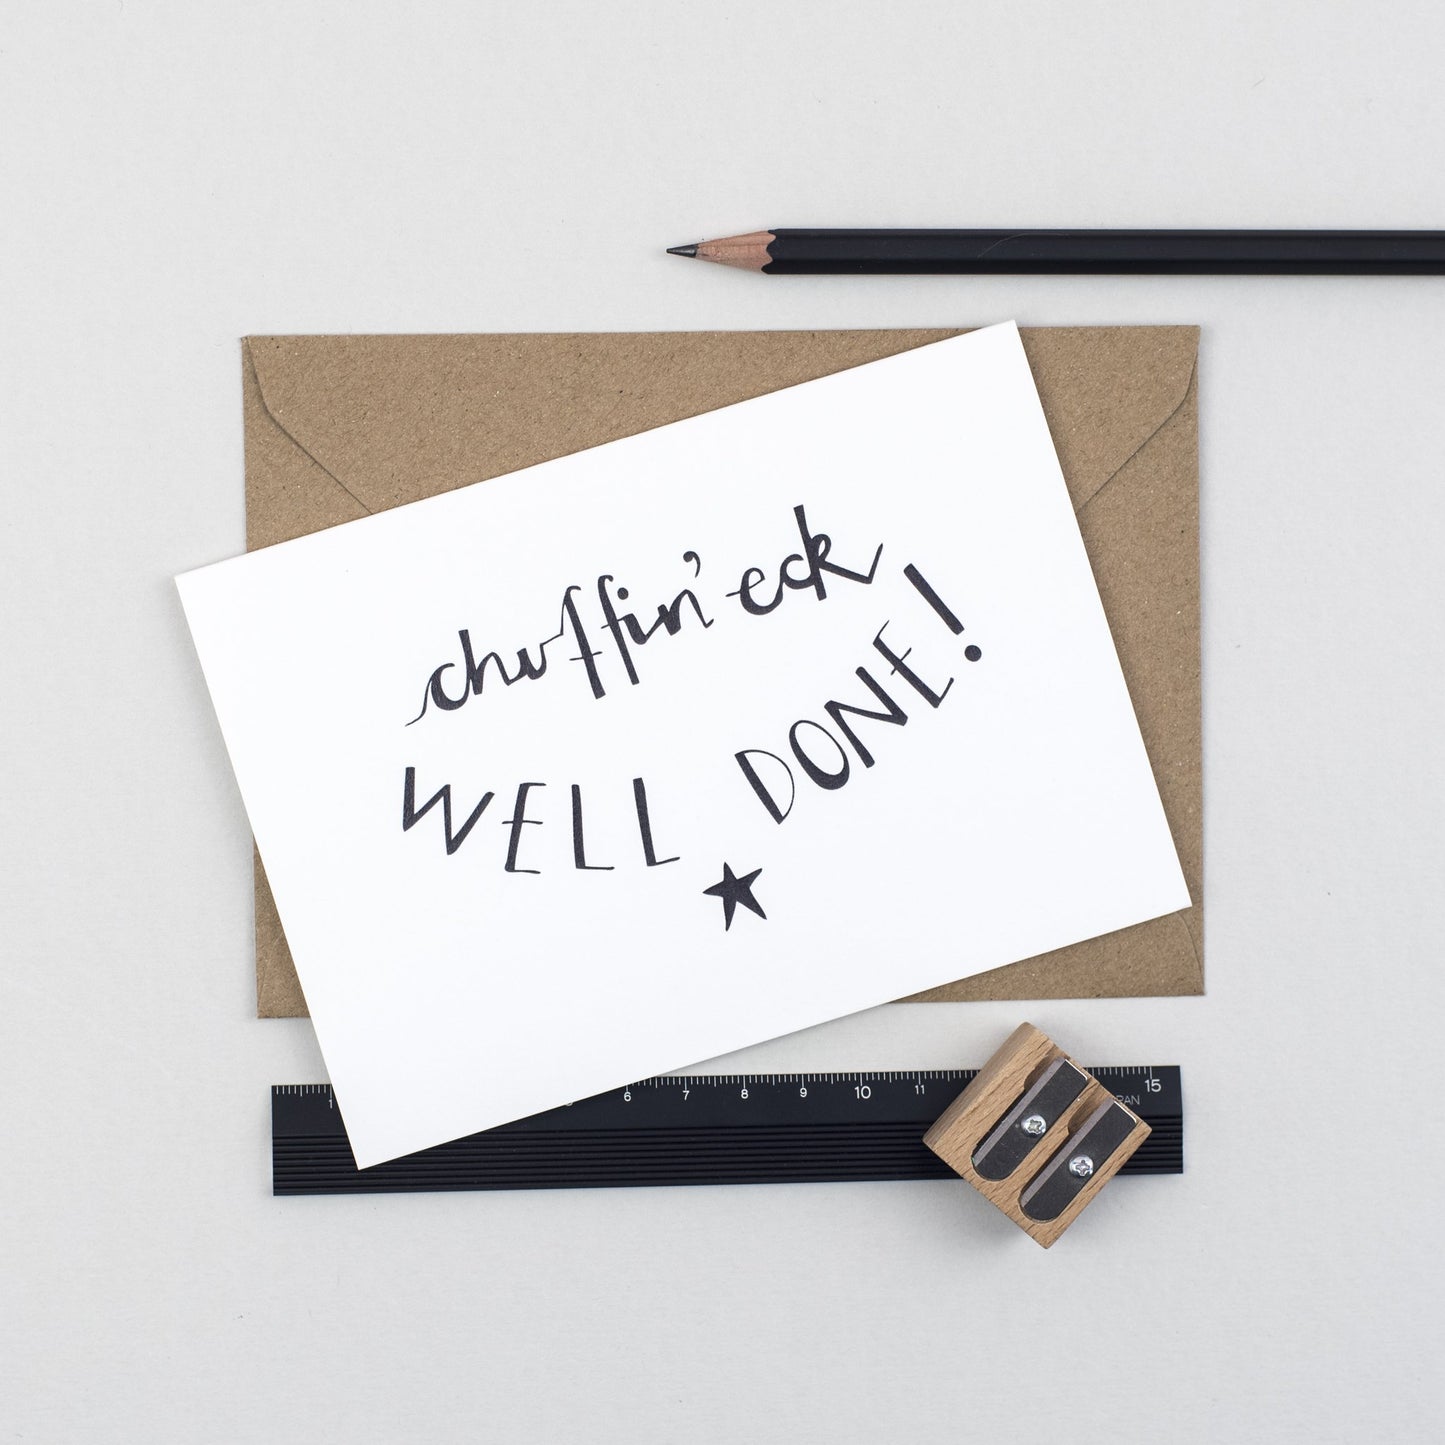 chuffin' eck
WELL DONE!
1 6 7 8 9 10 11 15
RAN